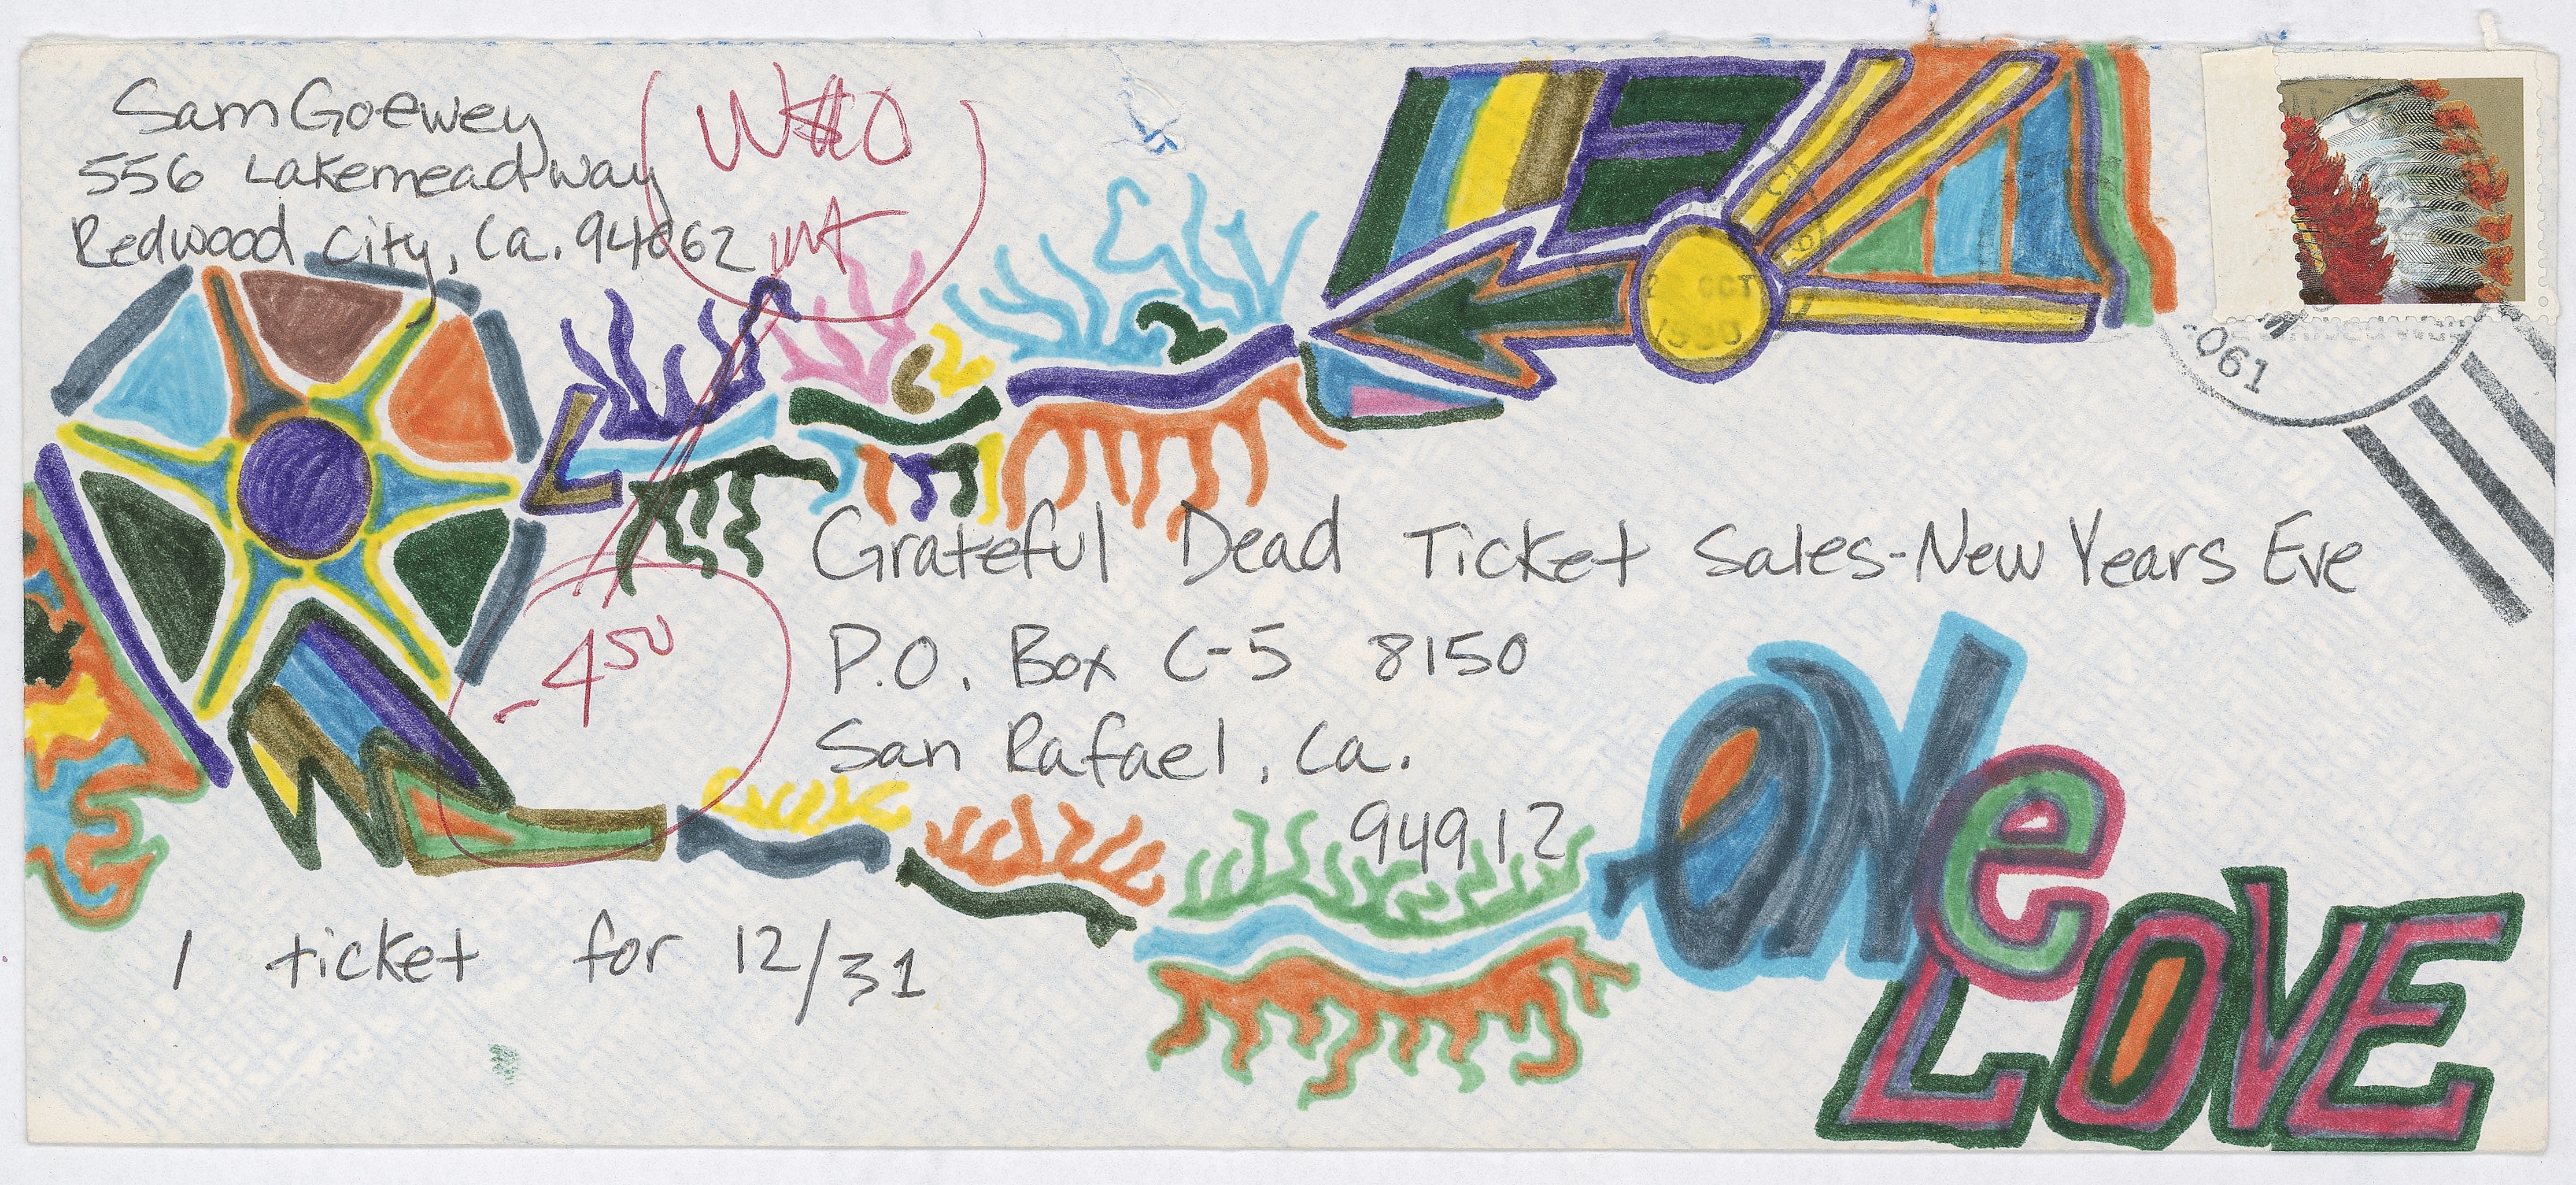 Sam Goewey
556 Lakemead Way
Redwood City, Ca. 94062
OCT
1990
061
-4 50
Grateful Dead Ticket Sales-New Years Eve
P.O. Box C-S 8150
San Rafael, Ca.
94912
1 ticket for 12/31
ONe
LOVE